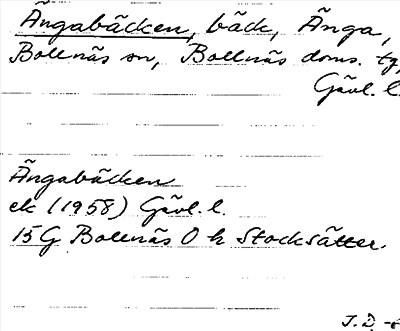 Ängabäcken, bäck, Änga,
Bollnäs sn, Bollnäs doms. tg,
Gävl. l.
Ängabäcken
ek (1958) Gävl. l.
15G Bollnäs O h Stocksätter.
J. D.